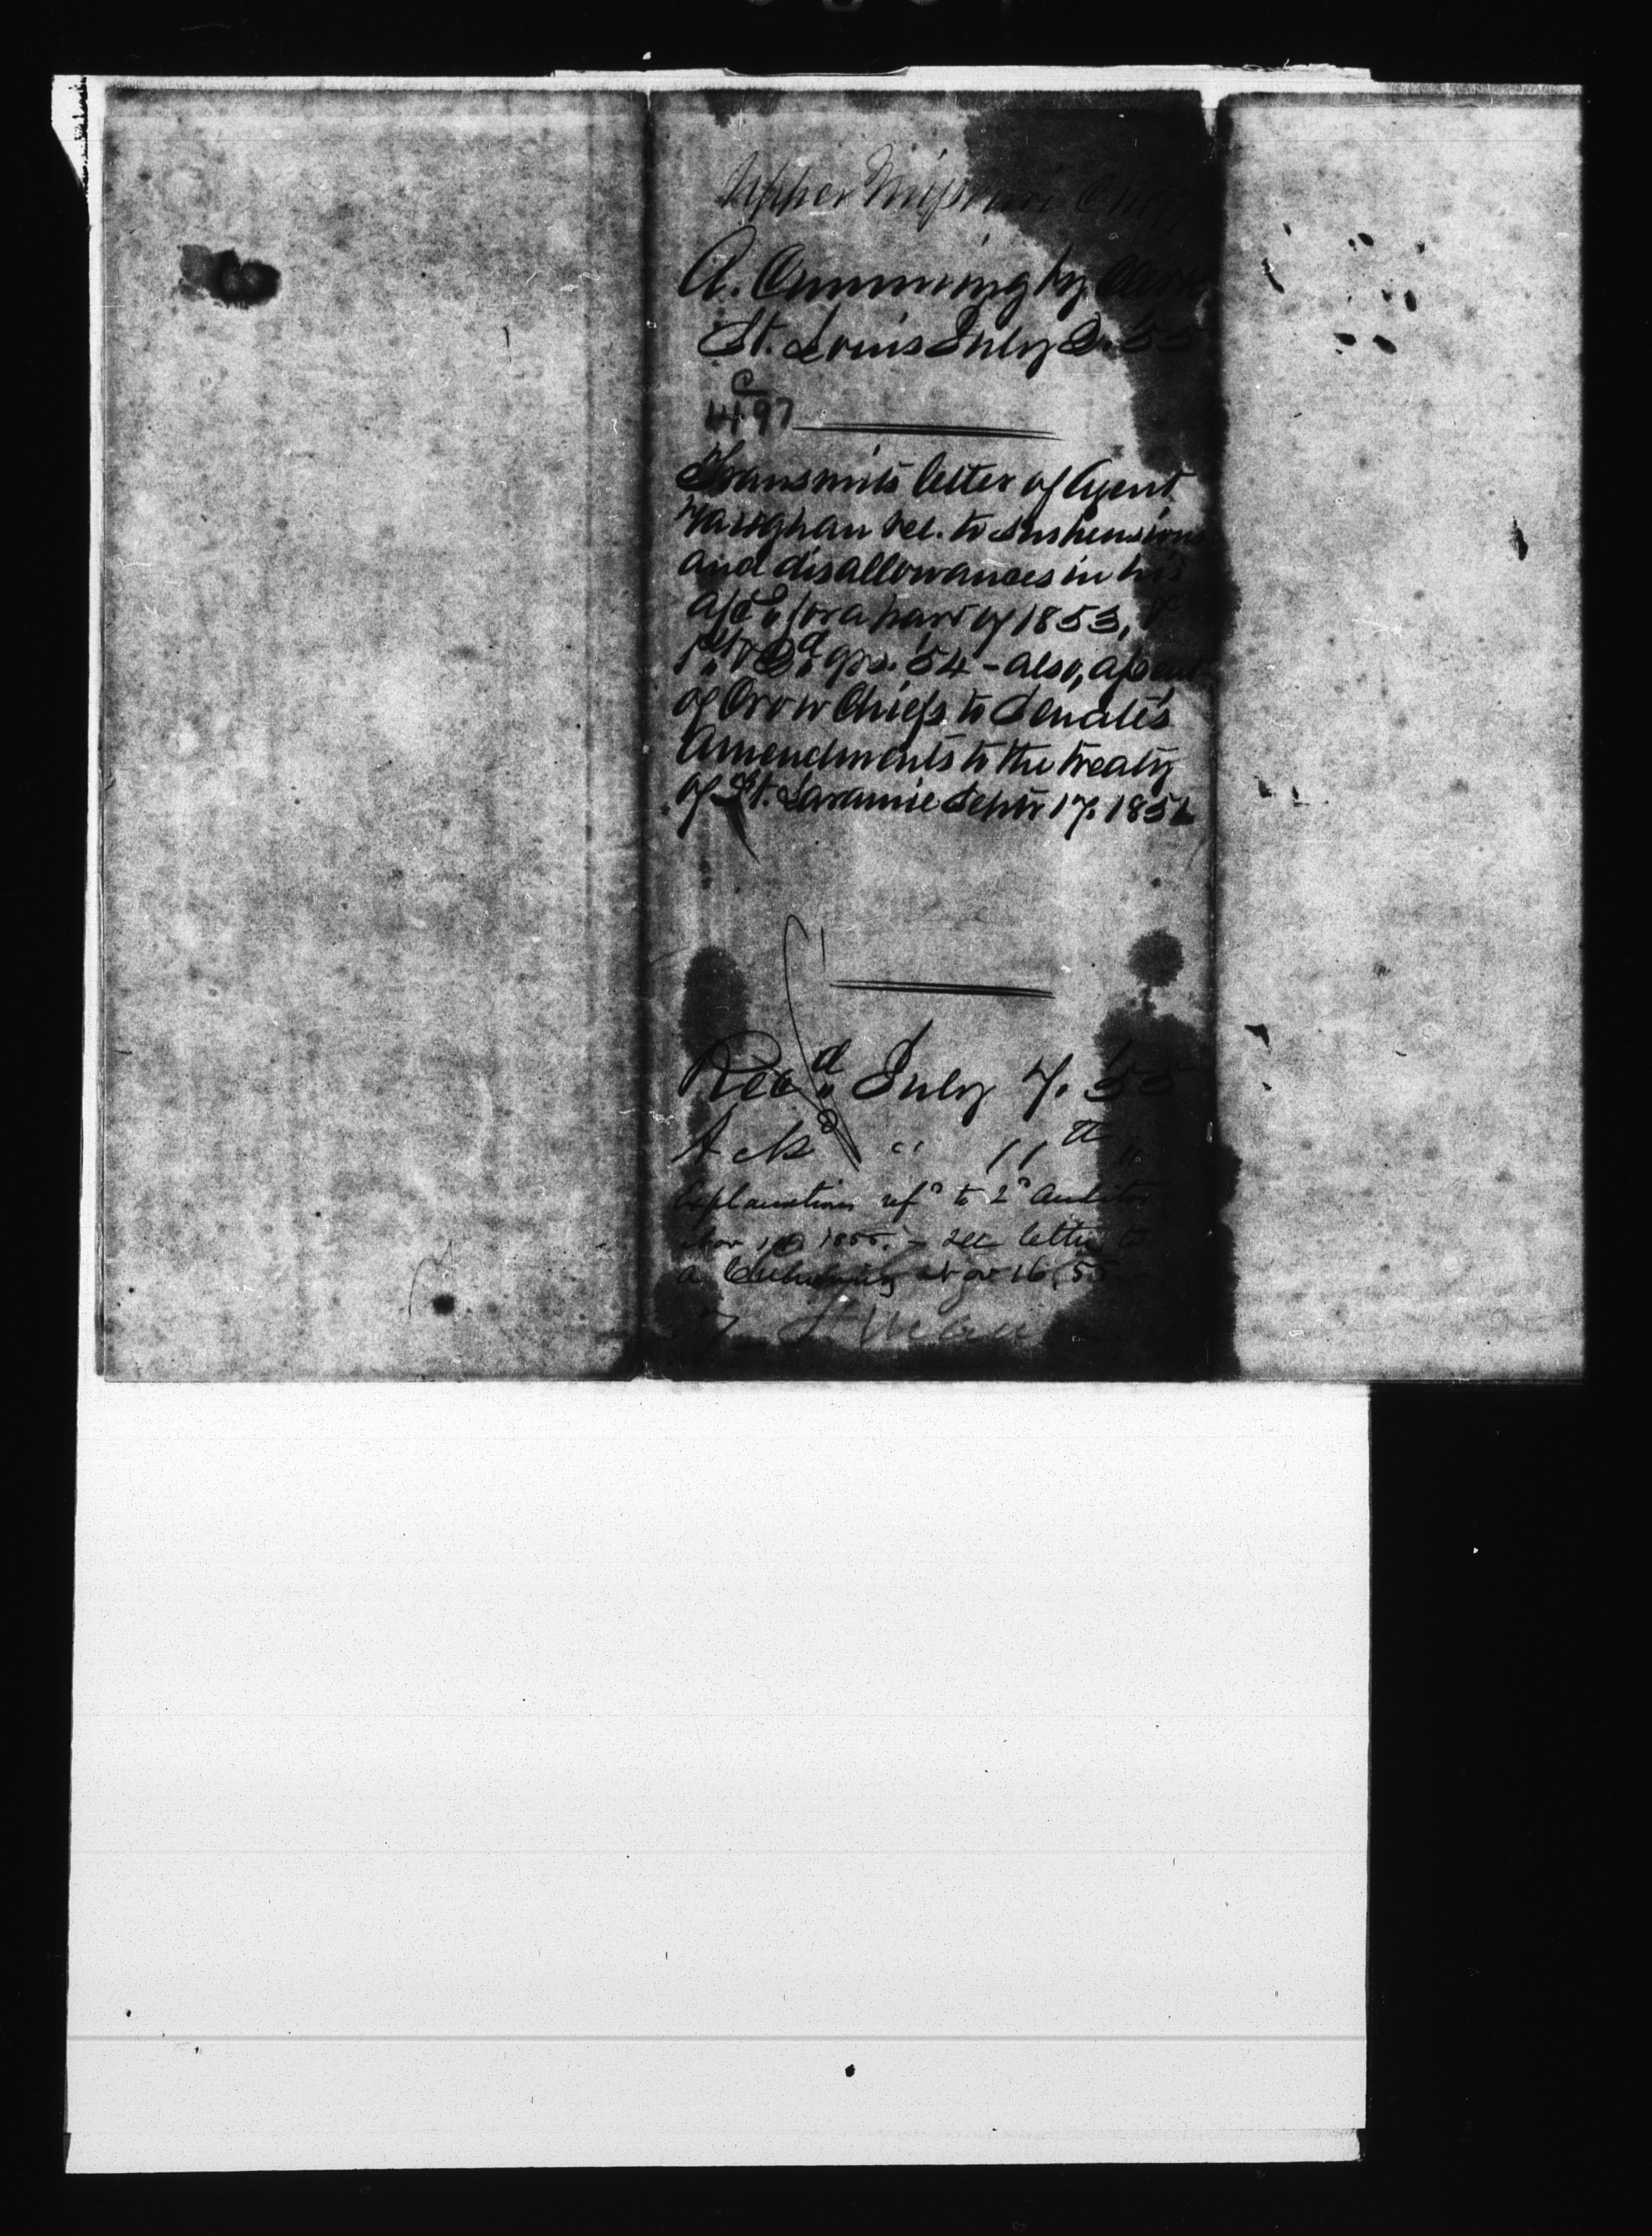 Upper Missouri
A. Cumming by Clerk
St. Louis July 2. '55
C
497
Transmits letter of Agent
Vaughan rel. to suspensions
and disallowances in his
a/cs, for a part of 1853, &
1st & 2d qrs. '54 - also, assent
of Crow Chiefs to Senate's
Amendments to the treaty
of Ft. Laramie Septr 17. 1851
Recd July 7. '55
Ackd " 11th "
Explanations refd to 2d Auditor
Nov 1855. - see letter to
A. Cumming Nov 16, 55